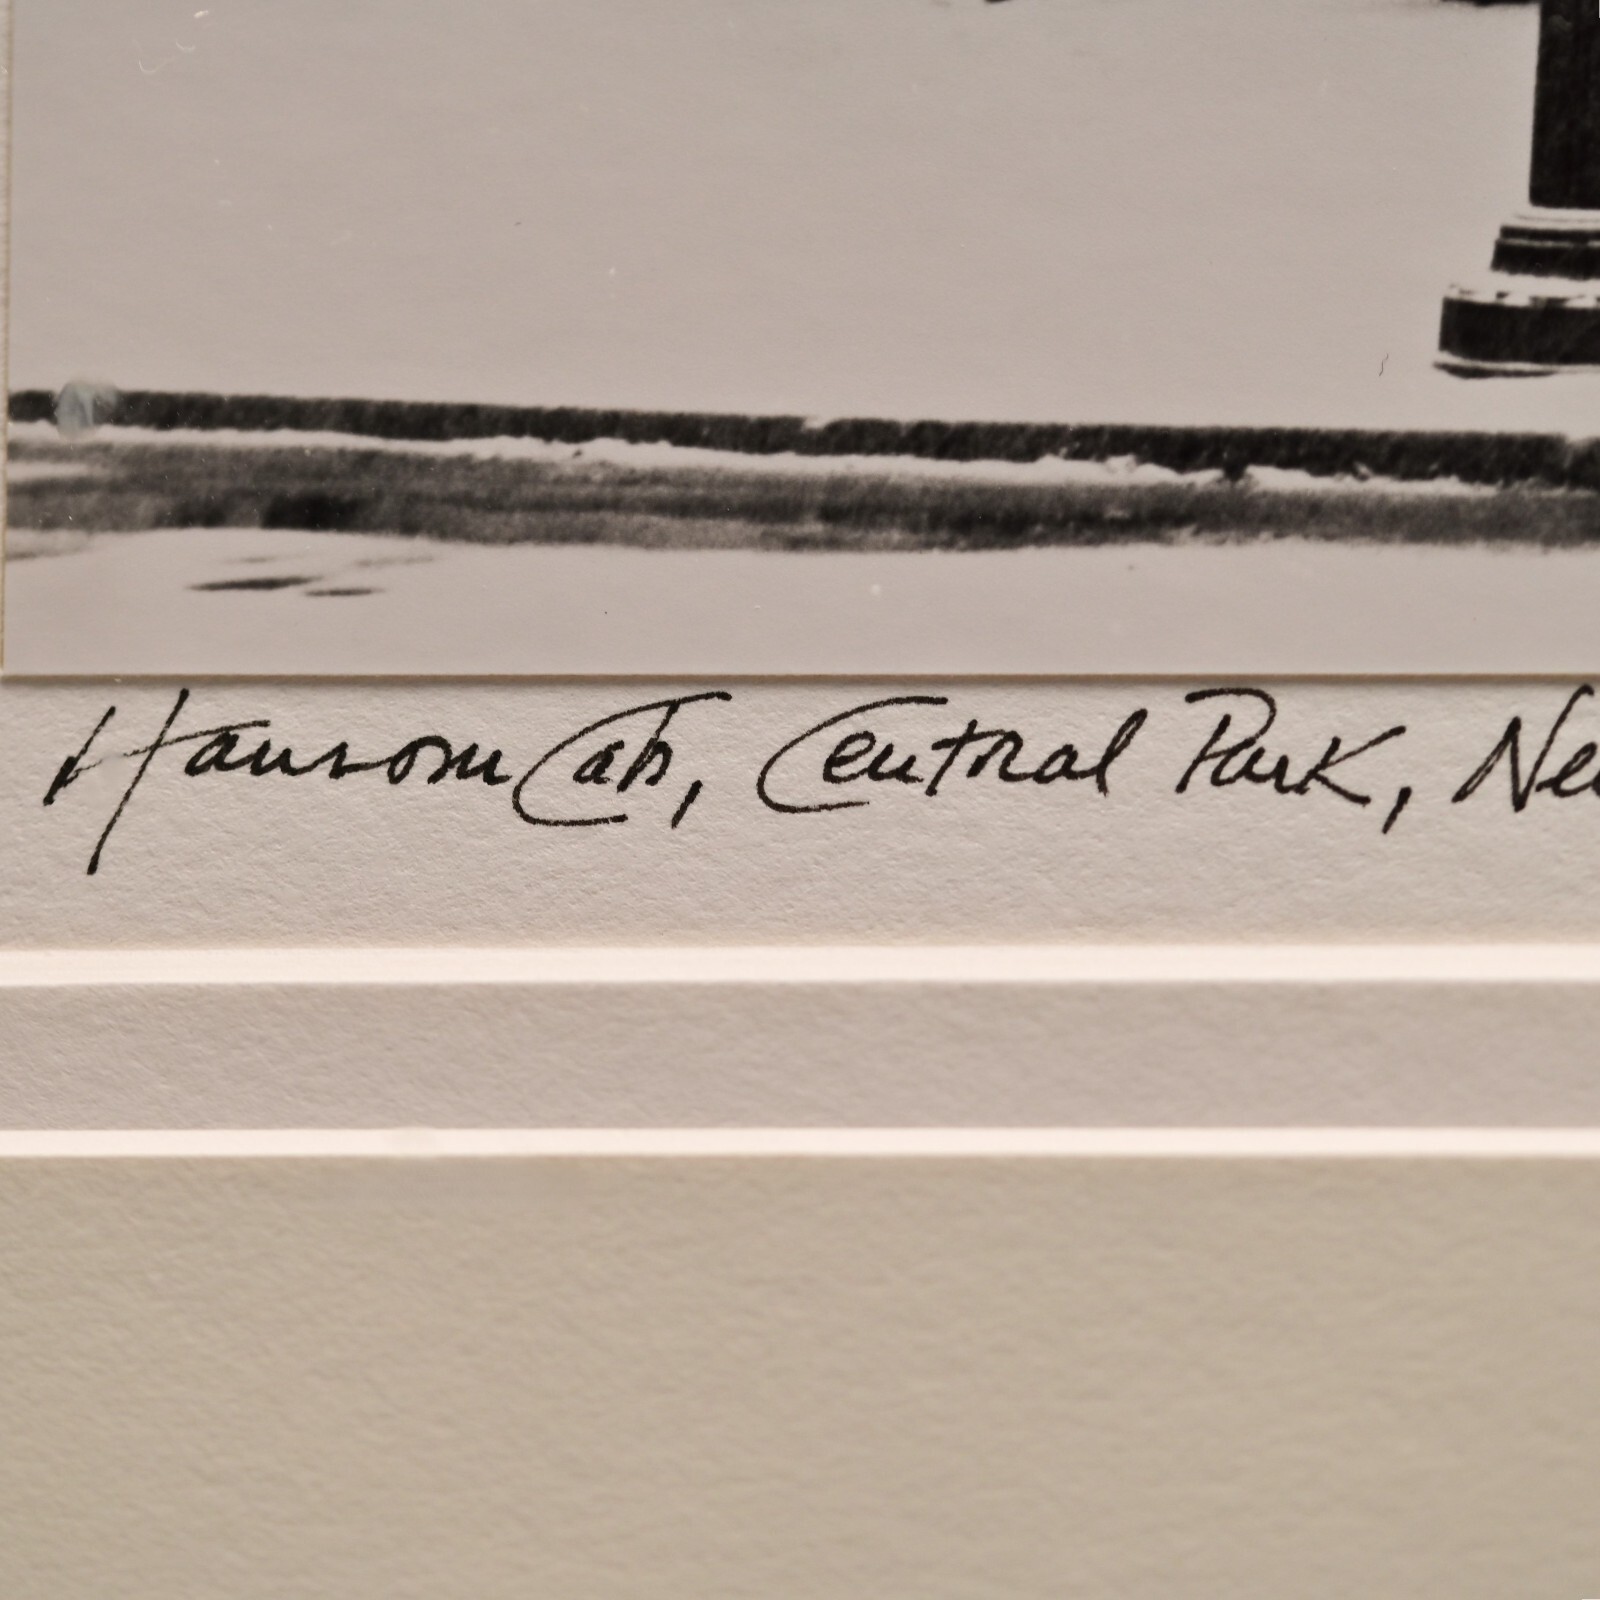 Hansom Cab, Central Park, Ne